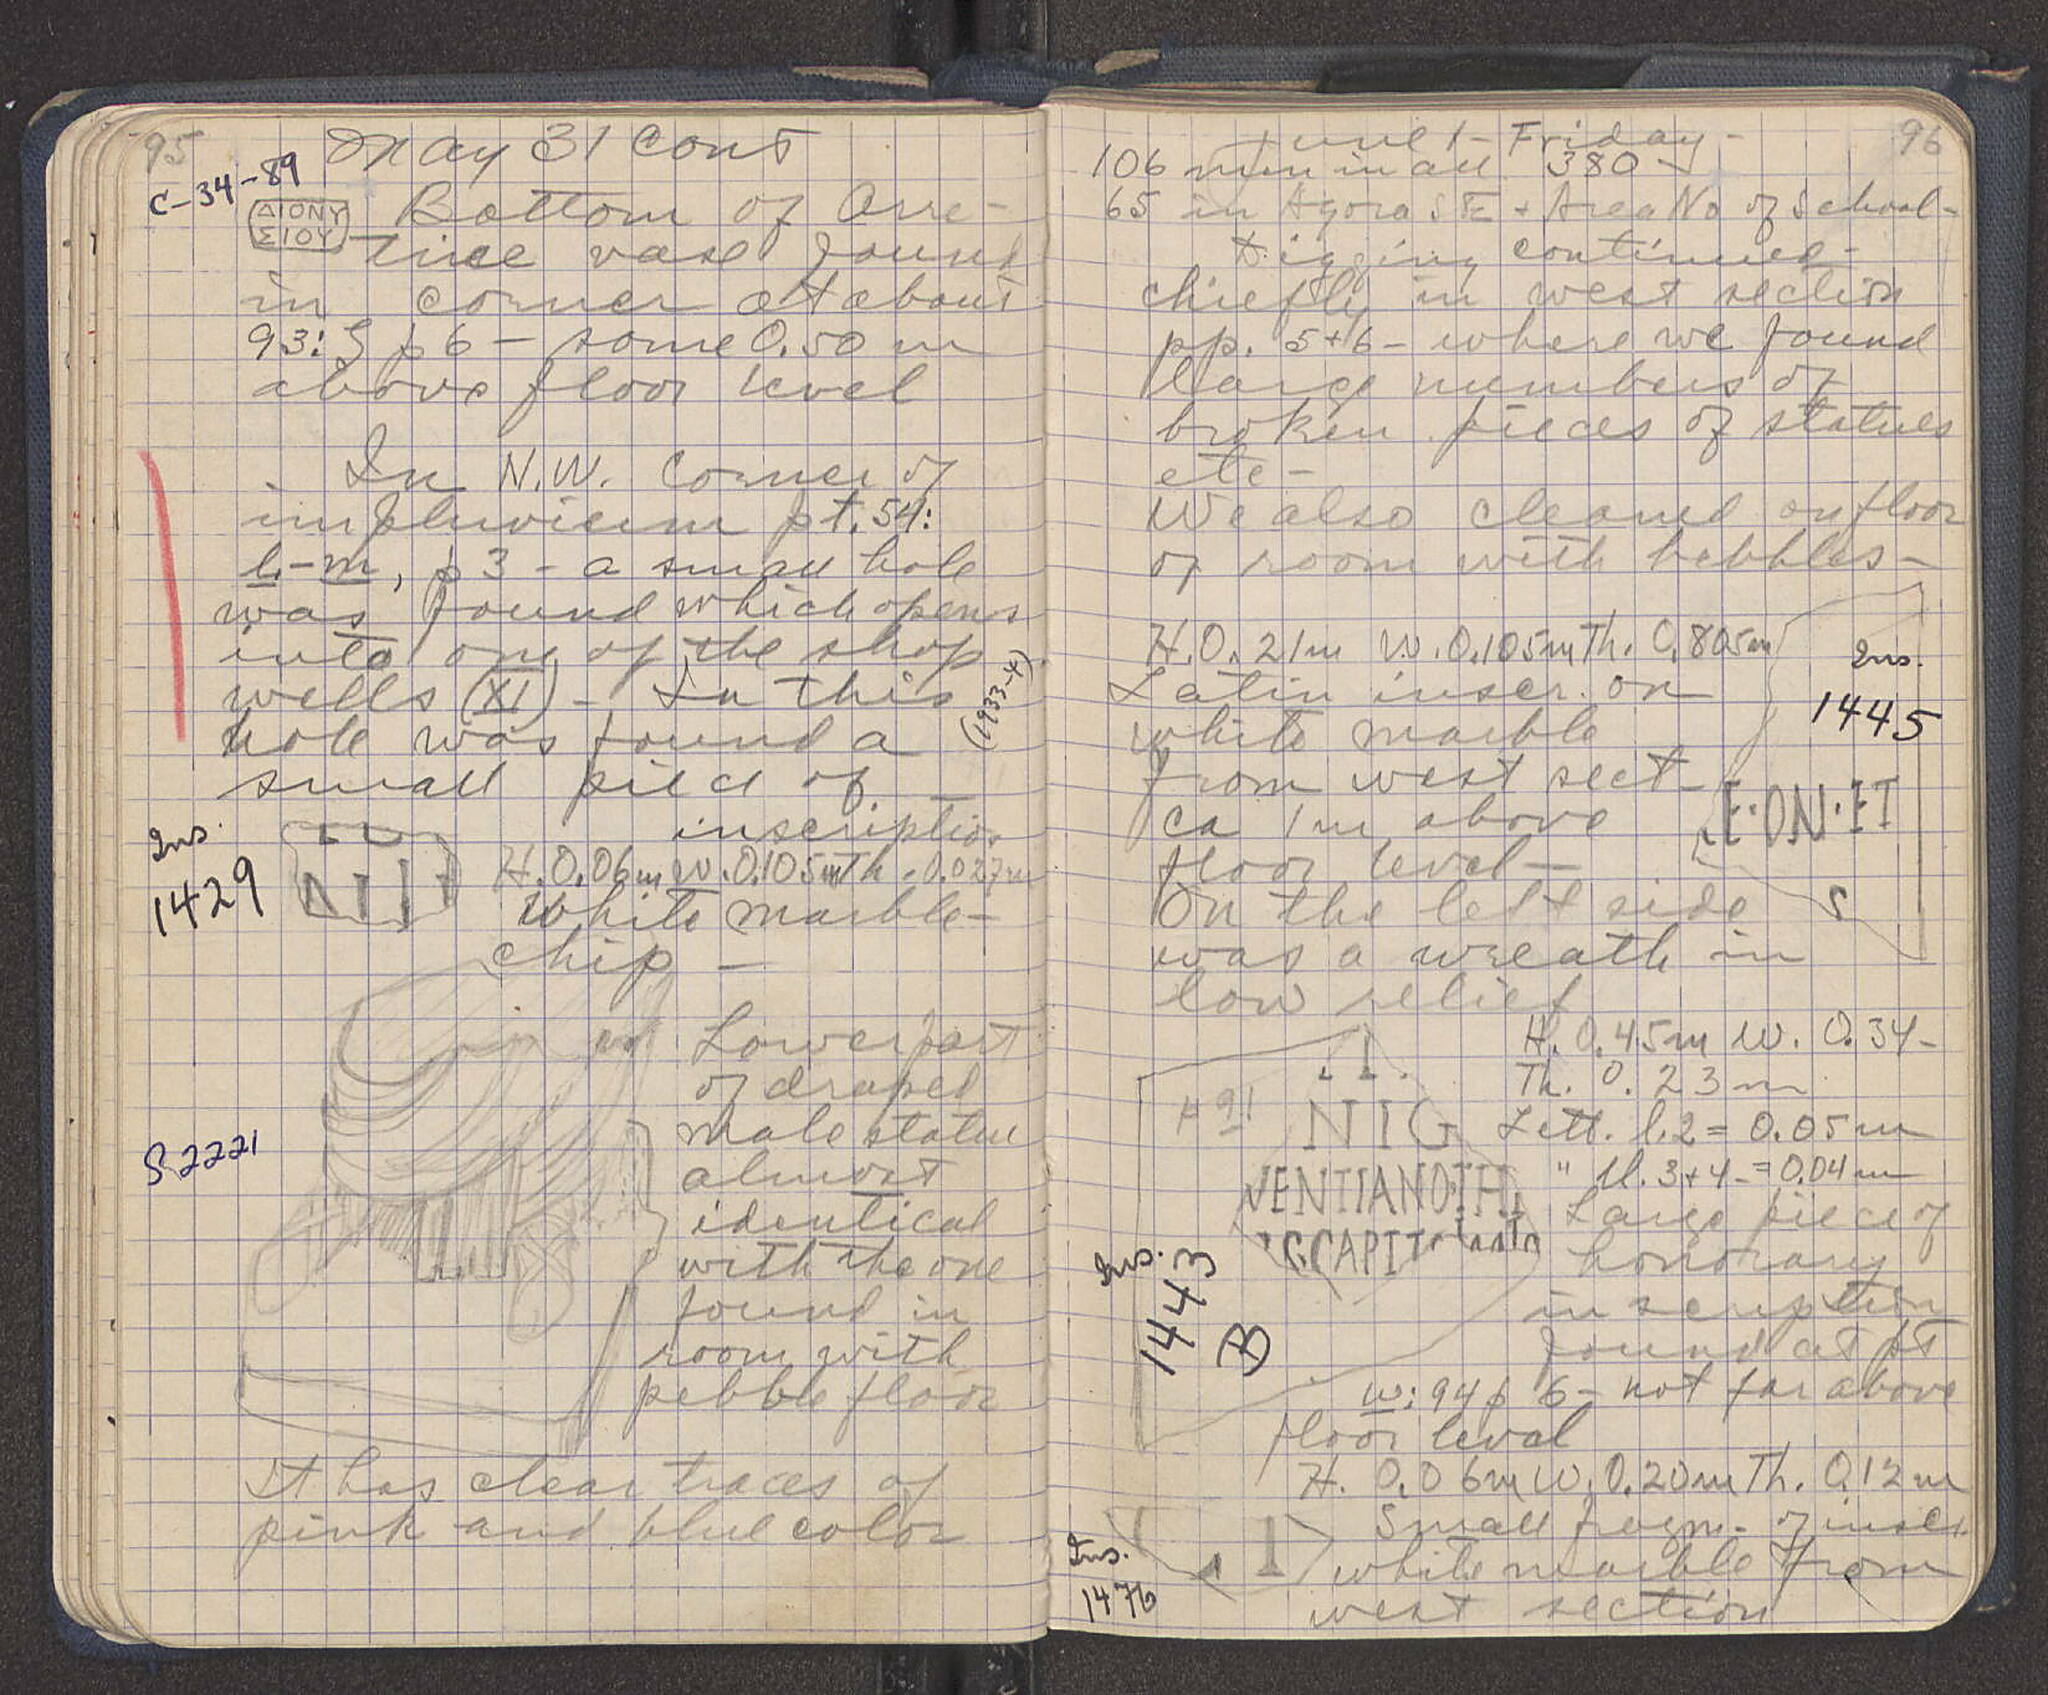 95
May 31 Cont
C-34-89
ΔΙΟΝΥ
ΣΙΟΥ
Bottom of Arre-
tine vase found
in corner at about
93: p 6 - some 0.50 m
above floor level
In N.W. Corner of
impluvium pt. 54:
l-m, p 3 - a small hole
was found which opens
into one of the shop
wells (XI) - In this
(1933-4)
hole was found a
small piece of
inscription
Ins.
1429
NIT
H. 0.06m W. 0.105m Th. 0.027m
White marble -
chip -
Lower part
of draped
male statue
almost
identical
with the one
found in
room with
pebble floor
S 2221
It has clear traces of
pink and blue color
96
June 1 - Friday -
106 men in all 380 -
65 in Agora SE + Area No of School -
Digging continued -
chiefly in west section
pp. 5+6 - where we found
large numbers of
broken pieces of statues
etc -
We also cleaned on floor
of room with pebbles -
H. 0.21m W. 0.105m Th. 0.805m
Ins.
1445
Latin inscr. on
white marble
from west sect -
ca 1m above
floor level -
E·ON·ET
S
On the left side
was a wreath in
low relief
H. 0.45m W. 0.34 -
Th. 0.23m
Lett. l.2 = 0.05m
" ll. 3+4 - = 0.04m
NIG
VENTIANO·TH
Large piece of
honorary
inscription
found at pt
w: 94 p 6 - not far above
floor level
Ins.
1443
B
H. 0.06m W. 0.20m Th. 0.12m
Small fragm. of inscr.
white marble from
west section
Ins.
1476